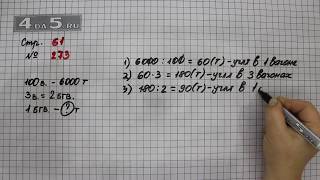 4ДА5.RU
Стр. 61
№ 273
100 в. - 6000 т
3 в. = 2 бгв.
1 бгв - ? т
1) 6000 : 100 = 60 (т) - угля в 1 вагоне
2) 60 · 3 = 180 (т) - угля в 3 вагонах
3) 180 : 2 = 90 (т) - угля в 1